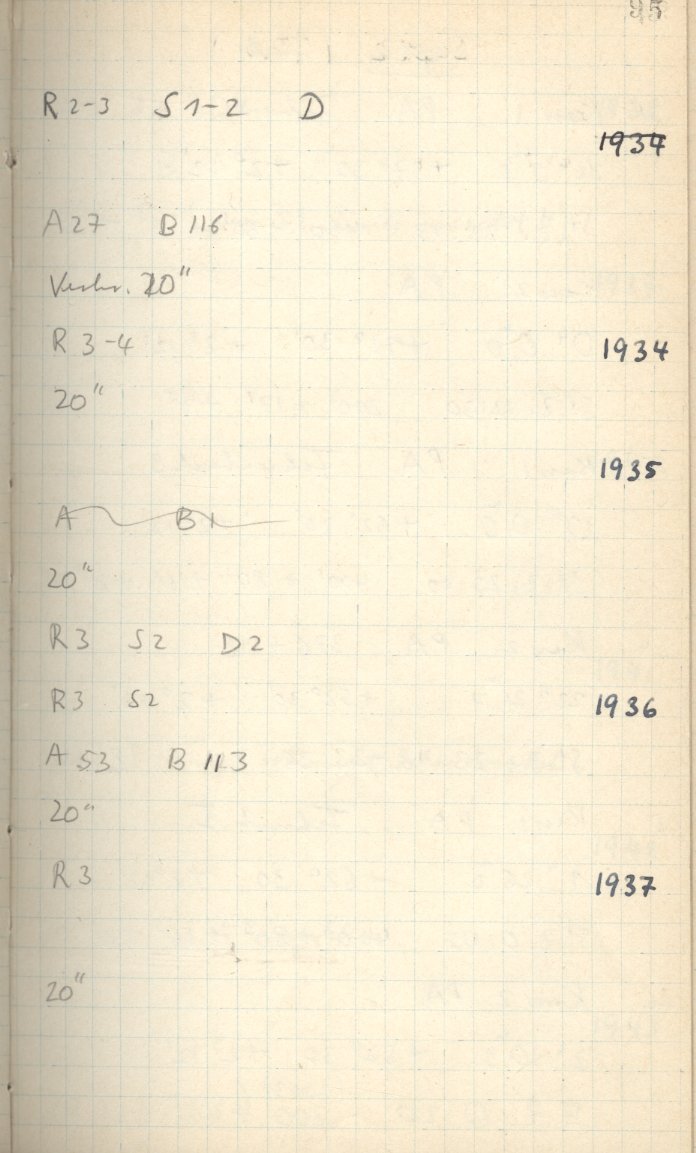 95
R 2-3 S 1-2 D
1934
A 27 B 116
Verbr. 20"
R 3-4
1934
20"
1935
A B1
20"
R 3 S 2 D 2
R 3 S 2
1936
A 53 B 113
20"
R 3
1937
20"